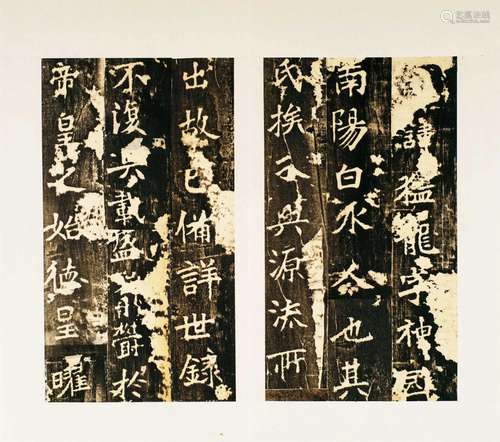 諱猛龍字神囧
南陽白水人也其
氏族分興源流所
出故已備詳世錄
不復具載盛欝於
帝皇之始德星曜